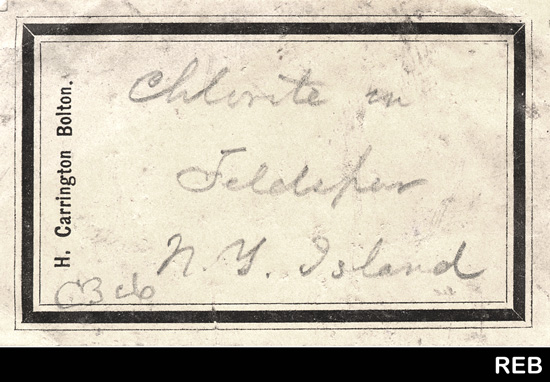 H. Carrington Bolton.
Chlorite in
Feldspar
N. Y. Island
REB